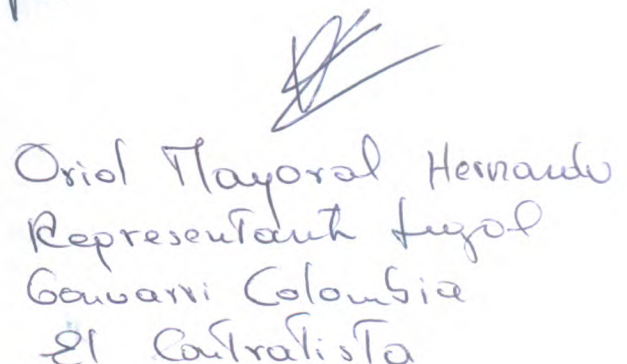 Oriol Mayoral Hernando
Representante Legal
Gonvarri Colombia
El Contratista